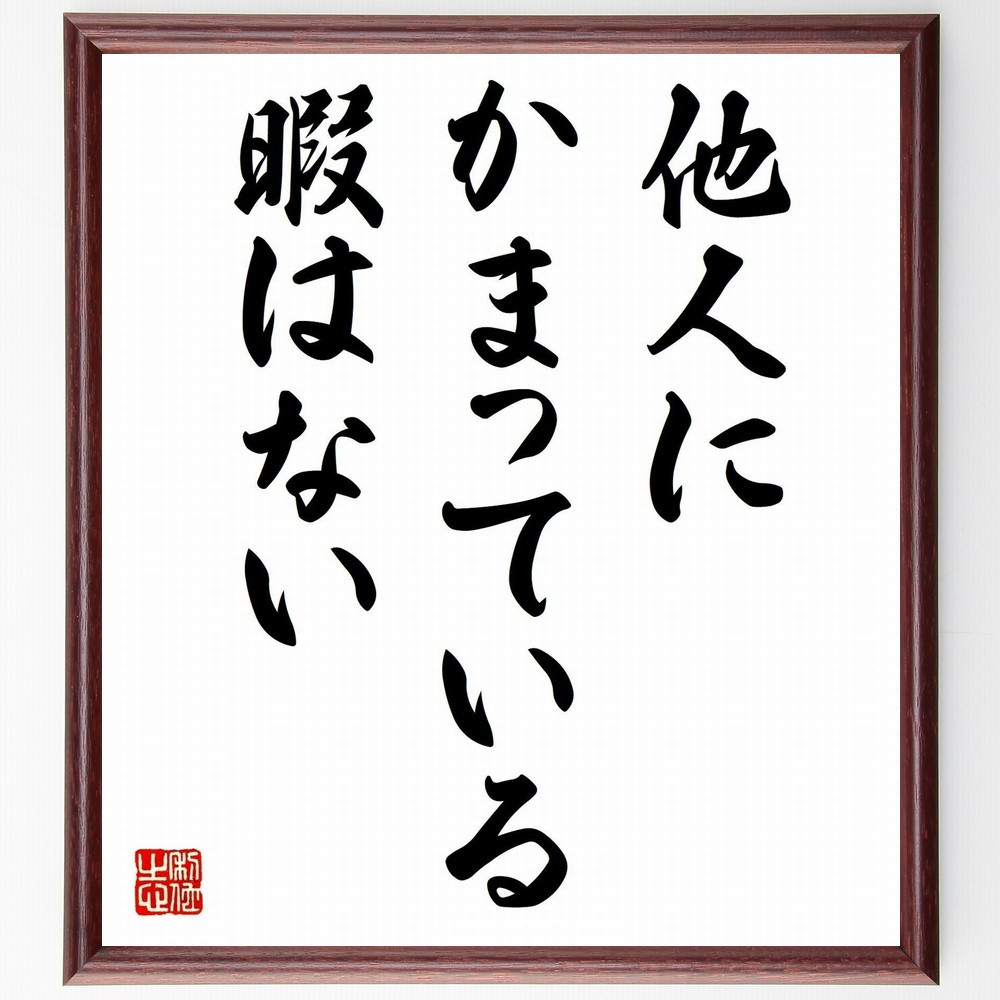 他人に
かまっている
暇はない